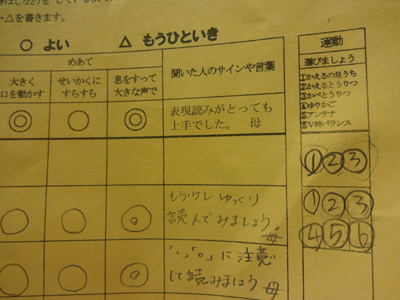 ・△を書きます。
○ よい　△ もうひといき
めあて
大きく
口を動かす
せいかくに
すらすら
息をすって
大きな声で
聞いた人のサインや言葉
◎ ○ ◎
表現読みがとっても
上手でした。 母
もう少し ゆっくり
読んでみましょう。母
「、」「。」に注意
して読みましょう 母
運動
選びましょう
①かえるの足うち
②かえるとうりつ
③かべとうりつ
④ゆりかご
⑤アンテナ
⑥V時バランス
①②③
①②③
④⑤⑥